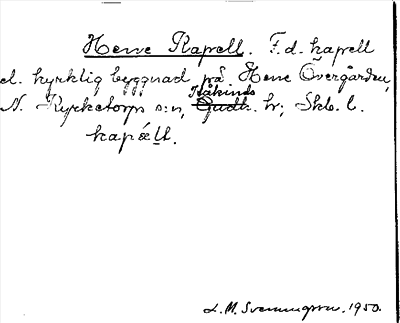 Hene Kapell. F.d. kapell
el. kyrklig byggnad på Hene Övergården,
N. Kyrketorps s:n, Kåkinds h:; Skb. l.
kapäll.
L. M. Svenungsson. 1950.